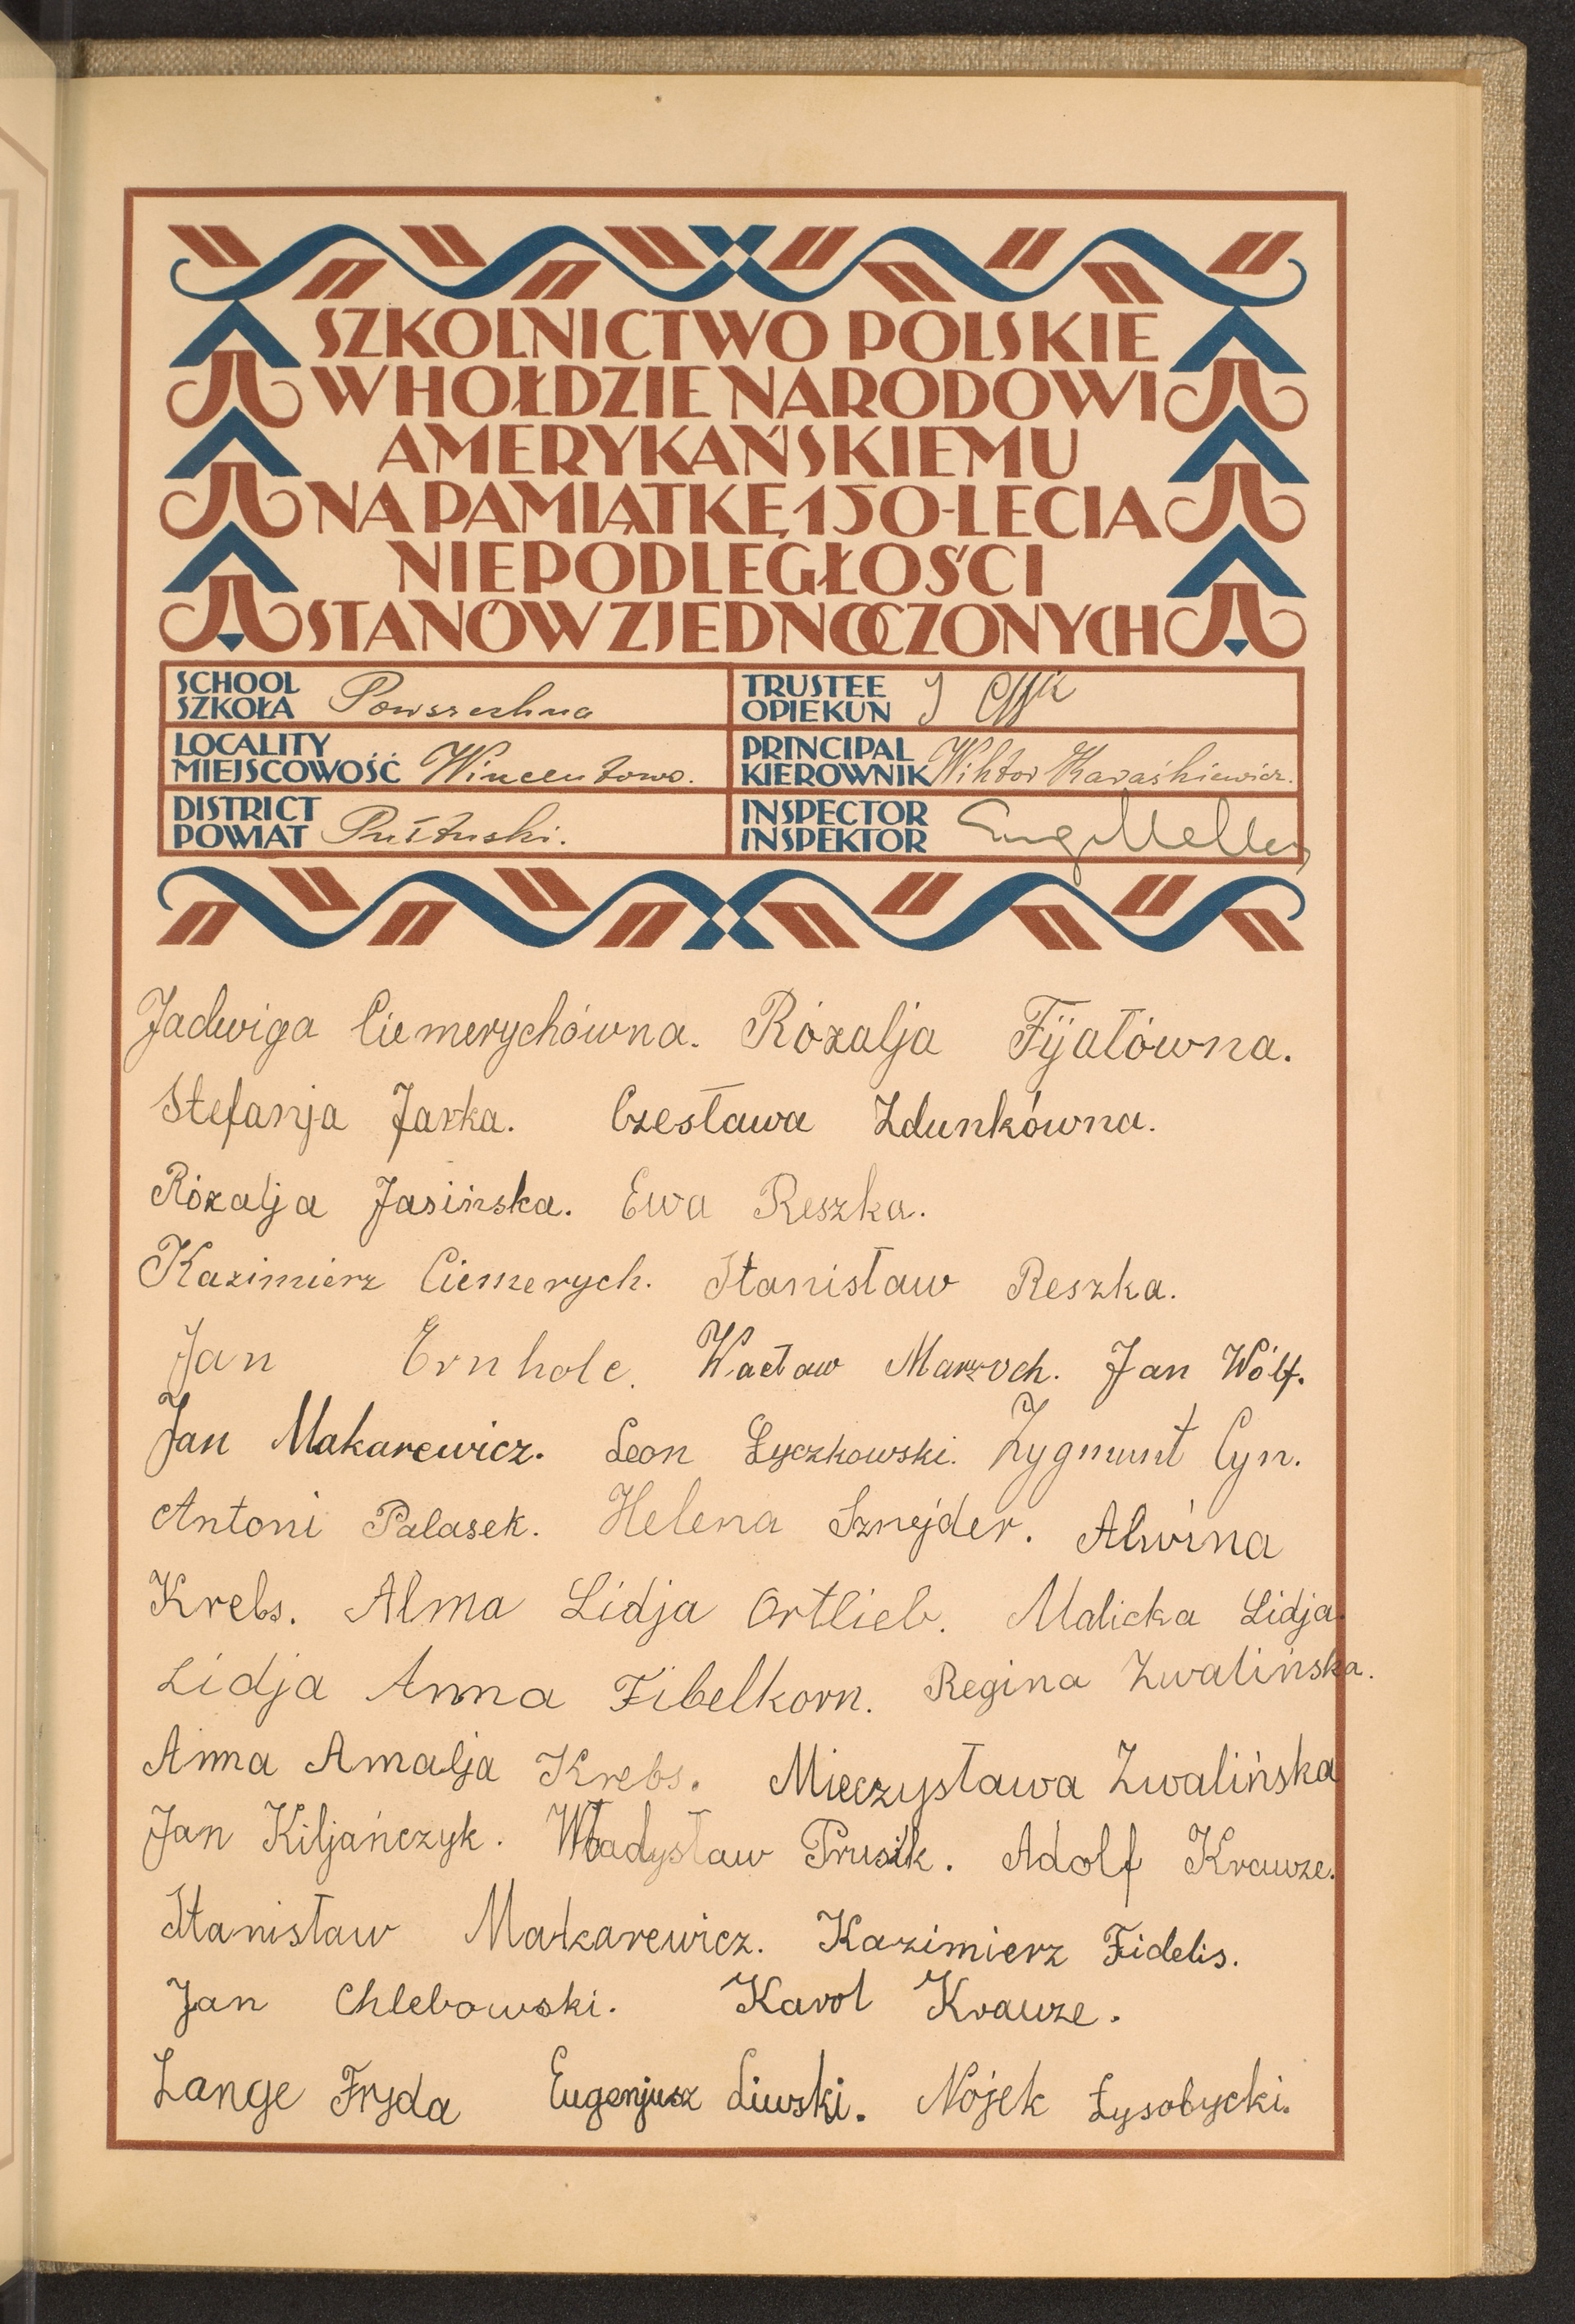 SZKOLNICTWO POLSKIE
W HOŁDZIE NARODOWI
AMERYKAŃSKIEMU
NA PAMIĄTKĘ 150-LECIA
NIEPODLEGŁOŚCI
STANÓW ZJEDNOCZONYCH
SCHOOL
SZKOŁA Powszechna
TRUSTEE
OPIEKUN
LOCALITY
MIEJSCOWOŚĆ Wincentowo.
PRINCIPAL
KIEROWNIK Wiktor Haraśkiewicz.
DISTRICT
POWIAT Pułtuski.
INSPECTOR
INSPEKTOR
Jadwiga Ciemerychówna. Rózalja Fijałówna.
Stefanja Jarka. Czesława Zdunkówna.
Rózalja Jasińska. Ewa Reszka.
Kazimierz Ciemerych. Stanisław Reszka.
Jan Ernholc. Wacław Marzoch. Jan Wólf.
Jan Makarewicz. Leon Łyczkowski. Zygmunt Cyn.
Antoni Palasek. Helena Sznejder. Alwina
Krebs. Alma Lidja Ortlieb. Malicka Lidja.
Lidja Anna Fibelkorn. Regina Zwalińska.
Anna Amalja Krebs. Mieczysława Zwalińska
Jan Kiljańczyk. Władysław Prusik. Adolf Krauze.
Stanisław Makarewicz. Kazimierz Fidelis.
Jan Chlebowski. Karol Krauze.
Lange Fryda Eugenjusz Liwski. Nojek Łysobycki.